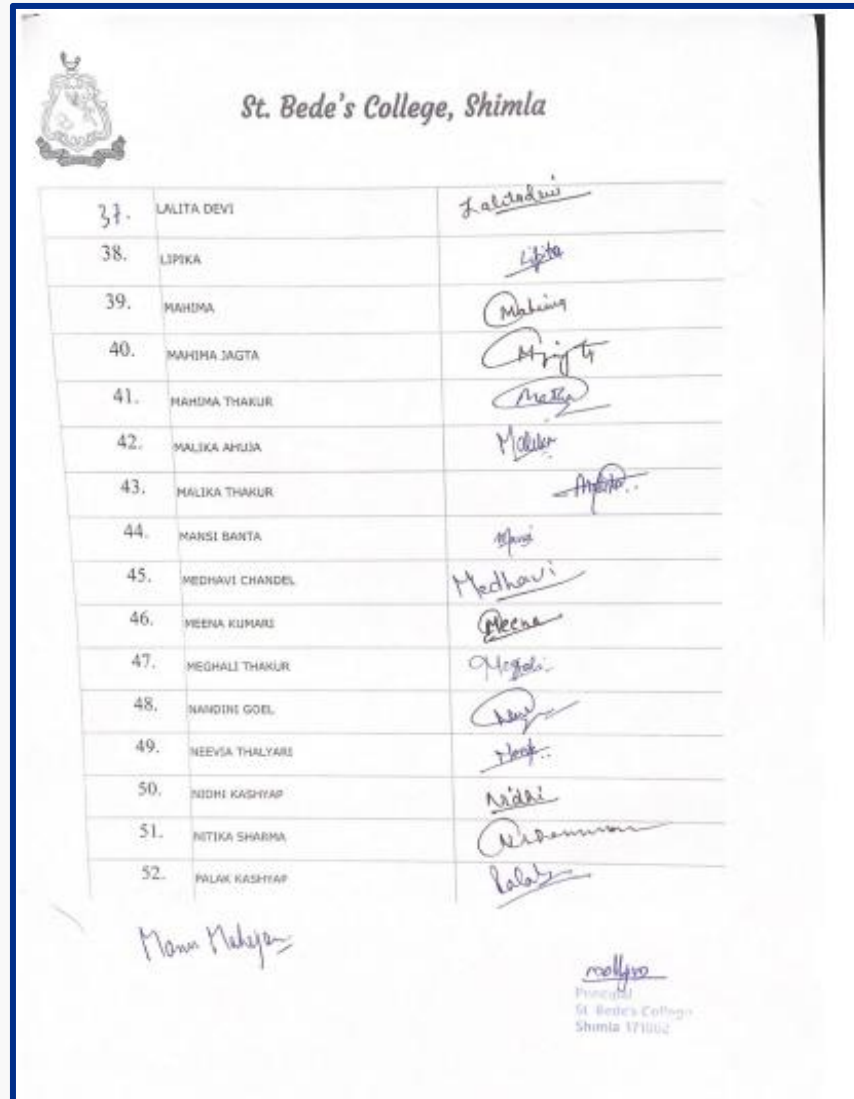 St. Bede's College, Shimla
37. LALITA DEVI Lalitadevi
38. LIPIKA Lipika
39. MAHIMA Mahima
40. MAHIMA JAGTA
41. MAHIMA THAKUR
42. MALIKA AHUJA Malika
43. MALIKA THAKUR
44. MANSI BANTA Mansi
45. MEDHAVI CHANDEL Medhavi
46. MEENA KUMARI Meena
47. MEGHALI THAKUR Meghali
48. NANDINI GOEL
49. NEEVIA THALYARI
50. NIDHI KASHYAP Nidhi
51. NITIKA SHARMA
52. PALAK KASHYAP Palak
Mahajan
Principal
St. Bede's College
Shimla 171002